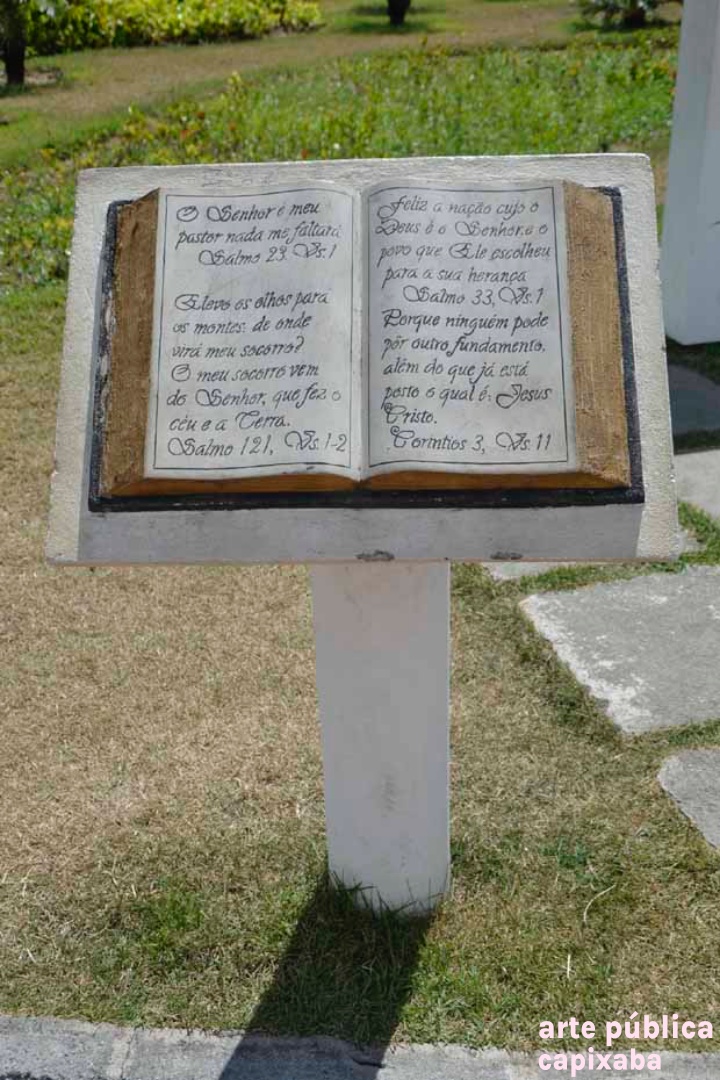 O Senhor é meu
pastor nada me faltará
Salmo 23. Vs.1
Elevo os olhos para
os montes: de onde
virá meu socorro?
O meu socorro vem
do Senhor, que fez o
céu e a Terra.
Salmo 121, Vs. 1-2
Feliz a nação cujo o
Deus é o Senhor, e o
povo que Ele escolheu
para a sua herança
Salmo 33, Vs.1
Porque ninguém pode
pôr outro fundamento,
além do que já está
posto o qual é: Jesus
Cristo.
Coríntios 3, Vs. 11
arte pública
capixaba